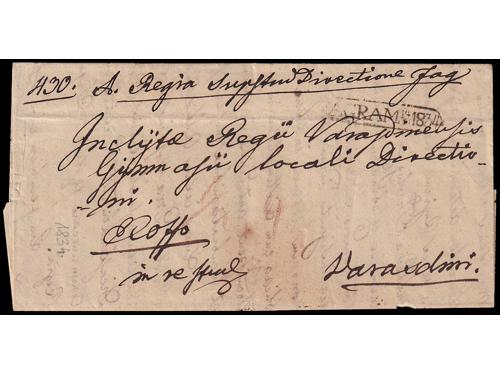 430. A. Regia Supstud Directione Zag
AGRAM 1834
Inclÿtæ Regii Varasdinensis
Gÿmnasii locali Directio-
-ni.
Ex offo
in re stud Varasdini.
1834